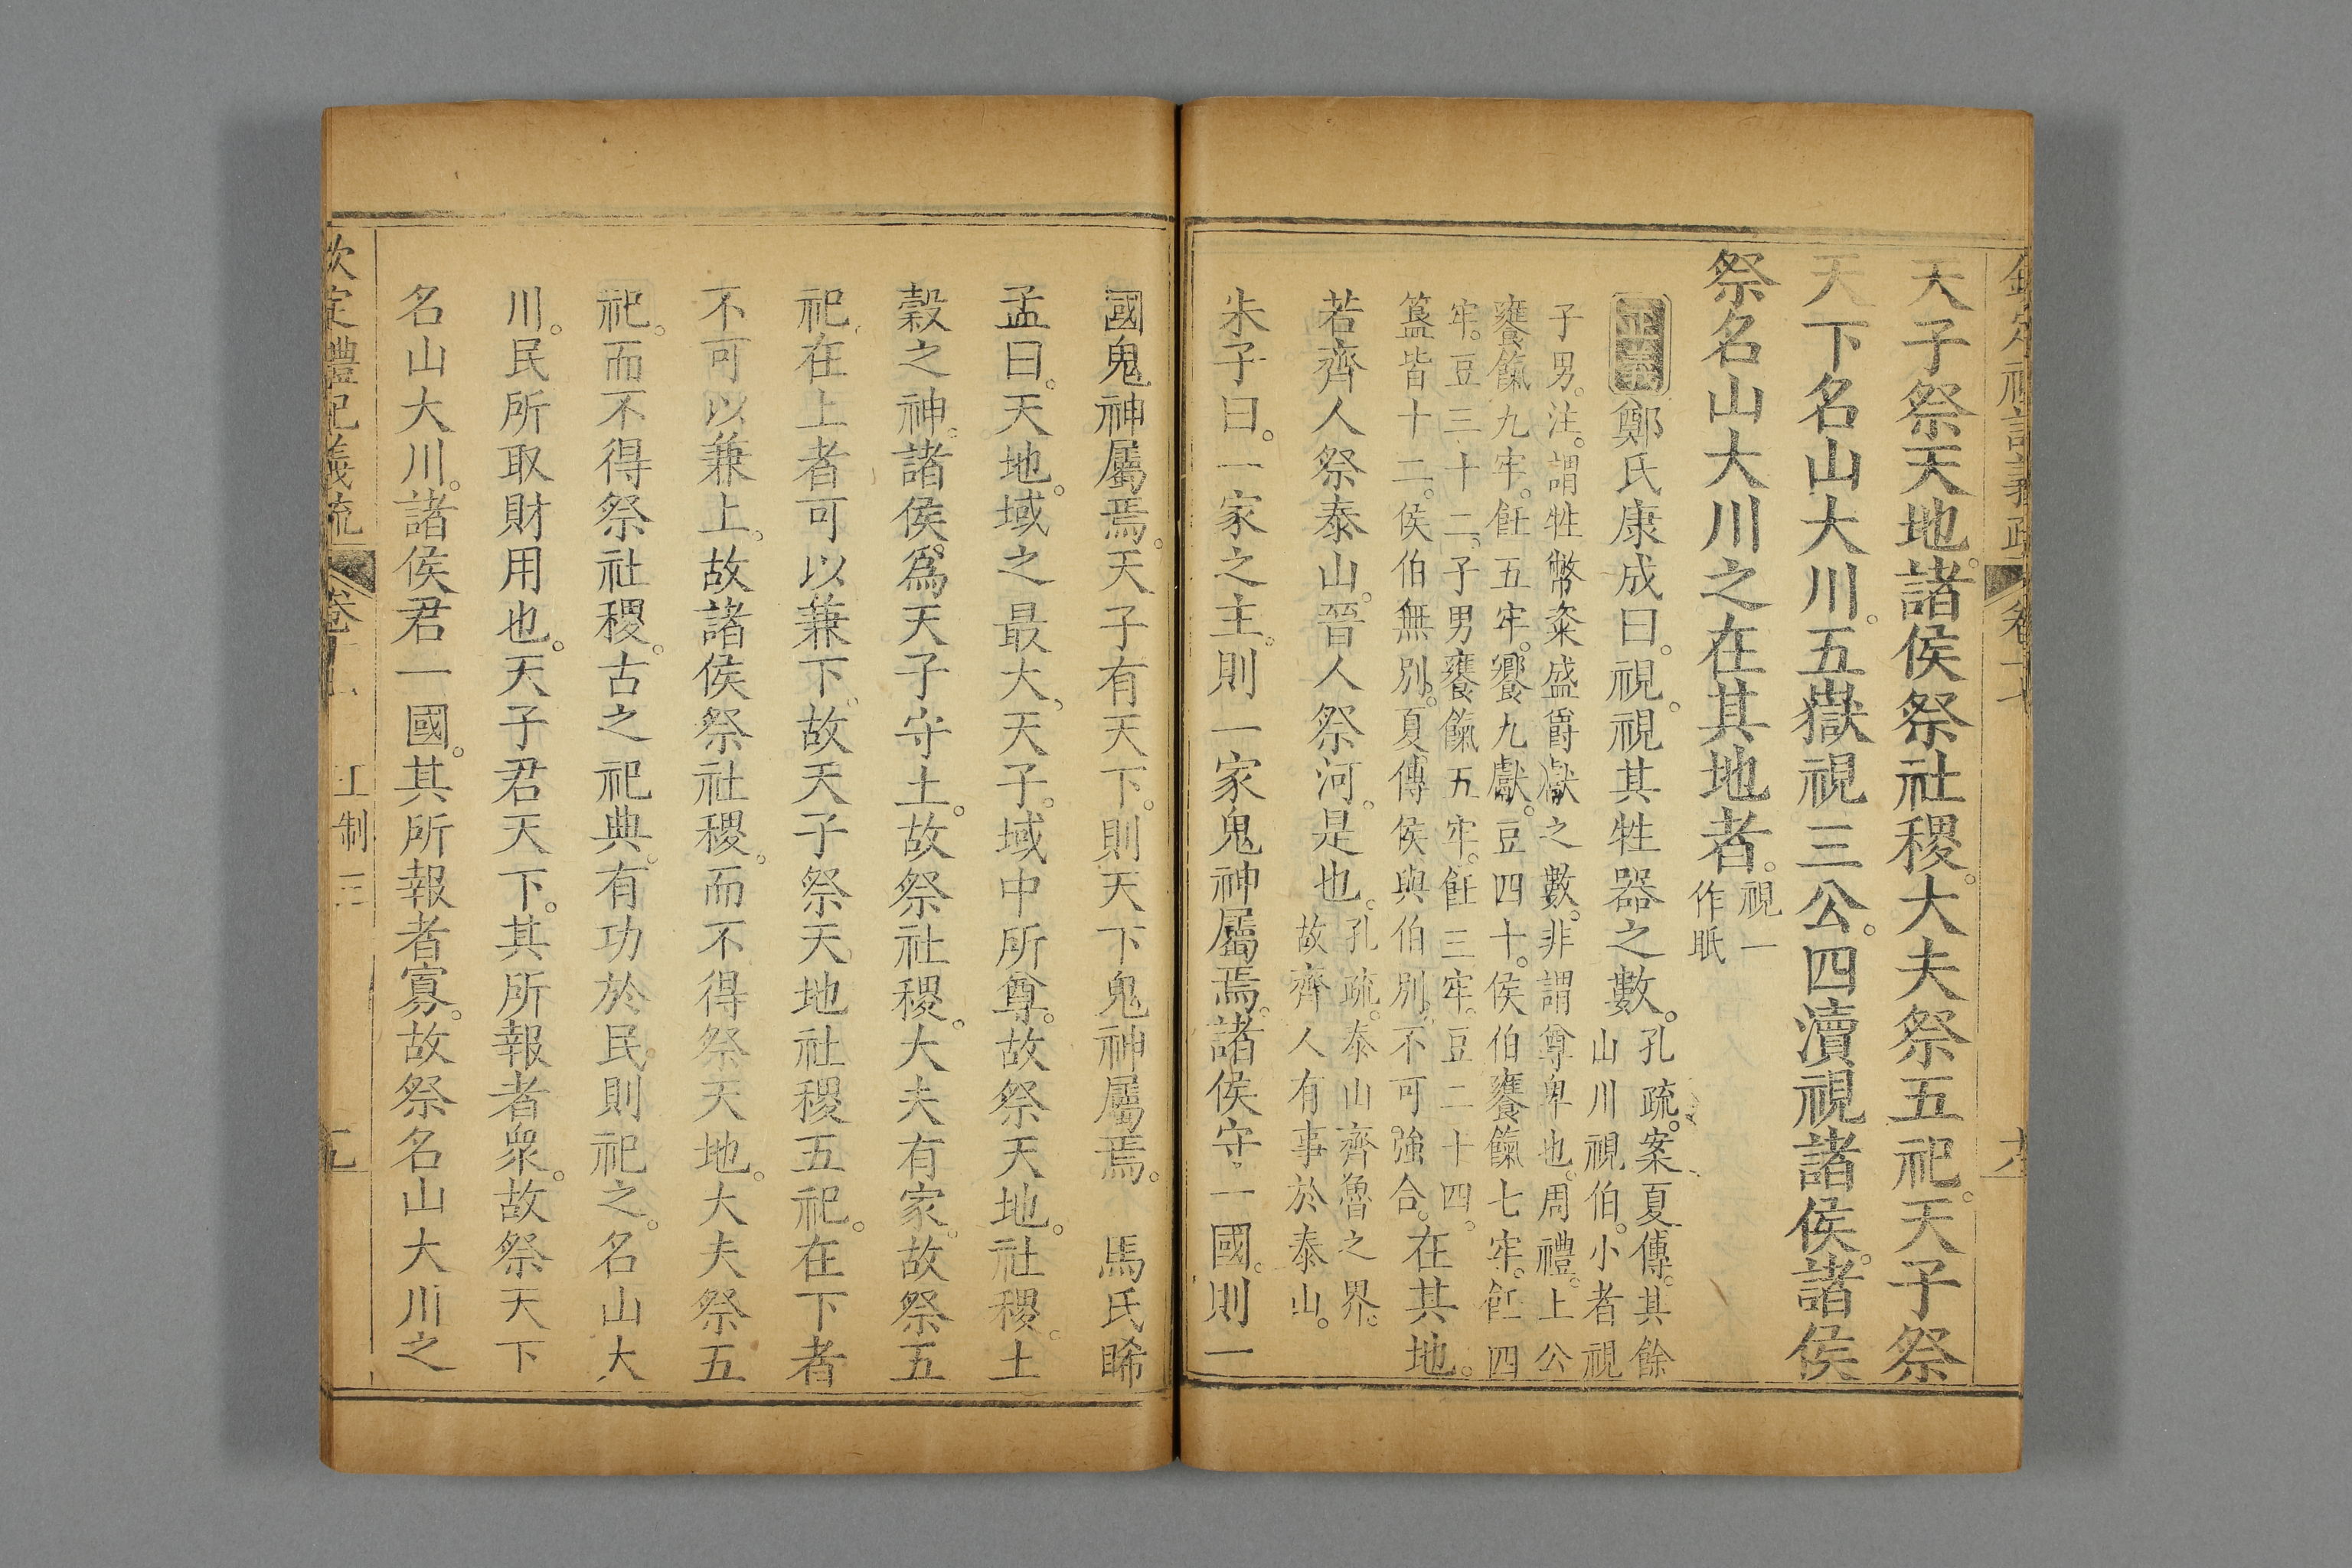 天子祭天地。諸侯祭社稷。大夫祭五祀。天子祭
天下名山大川。五嶽視三公。四瀆視諸侯。諸侯
祭名山大川之在其地者。視一
作眂
正義鄭氏康成曰。視。視其牲器之數。孔疏。案夏傳。其餘
山川視伯。小者視
子男。注。謂牲幣粢盛籩獻之數。非謂尊卑也。周禮。上公
饔餼九牢。飪五牢。饗九獻。豆四十。侯伯饔餼七牢。飪四
牢。豆三十二。子男饔餼五牢。飪三牢。豆二十四。
簋皆十二。侯伯無別。夏傳侯與伯別。不可強合。在其地。
若齊人祭泰山。晉人祭河。是也。孔疏。泰山齊魯之界。
故齊人有事於泰山。
朱子曰。一家之主。則一家鬼神屬焉。諸侯守一國。則一
國鬼神屬焉。天子有天下。則天下鬼神屬焉。 馬氏睎
孟曰。天地。域之最大。天子。域中所尊。故祭天地。社稷。土
穀之神。諸侯。爲天子守土。故祭社稷。大夫有家。故祭五
祀。在上者可以兼下。故天子祭天地社稷五祀。在下者
不可以兼上。故諸侯祭社稷。而不得祭天地。大夫祭五
祀。而不得祭社稷。古之祀典。有功於民。則祀之。名山大
川。民所取財用也。天子君天下。其所報者衆。故祭天下
名山大川。諸侯君一國。其所報者寡。故祭名山大川之
欽定禮記義疏 卷十 王制三